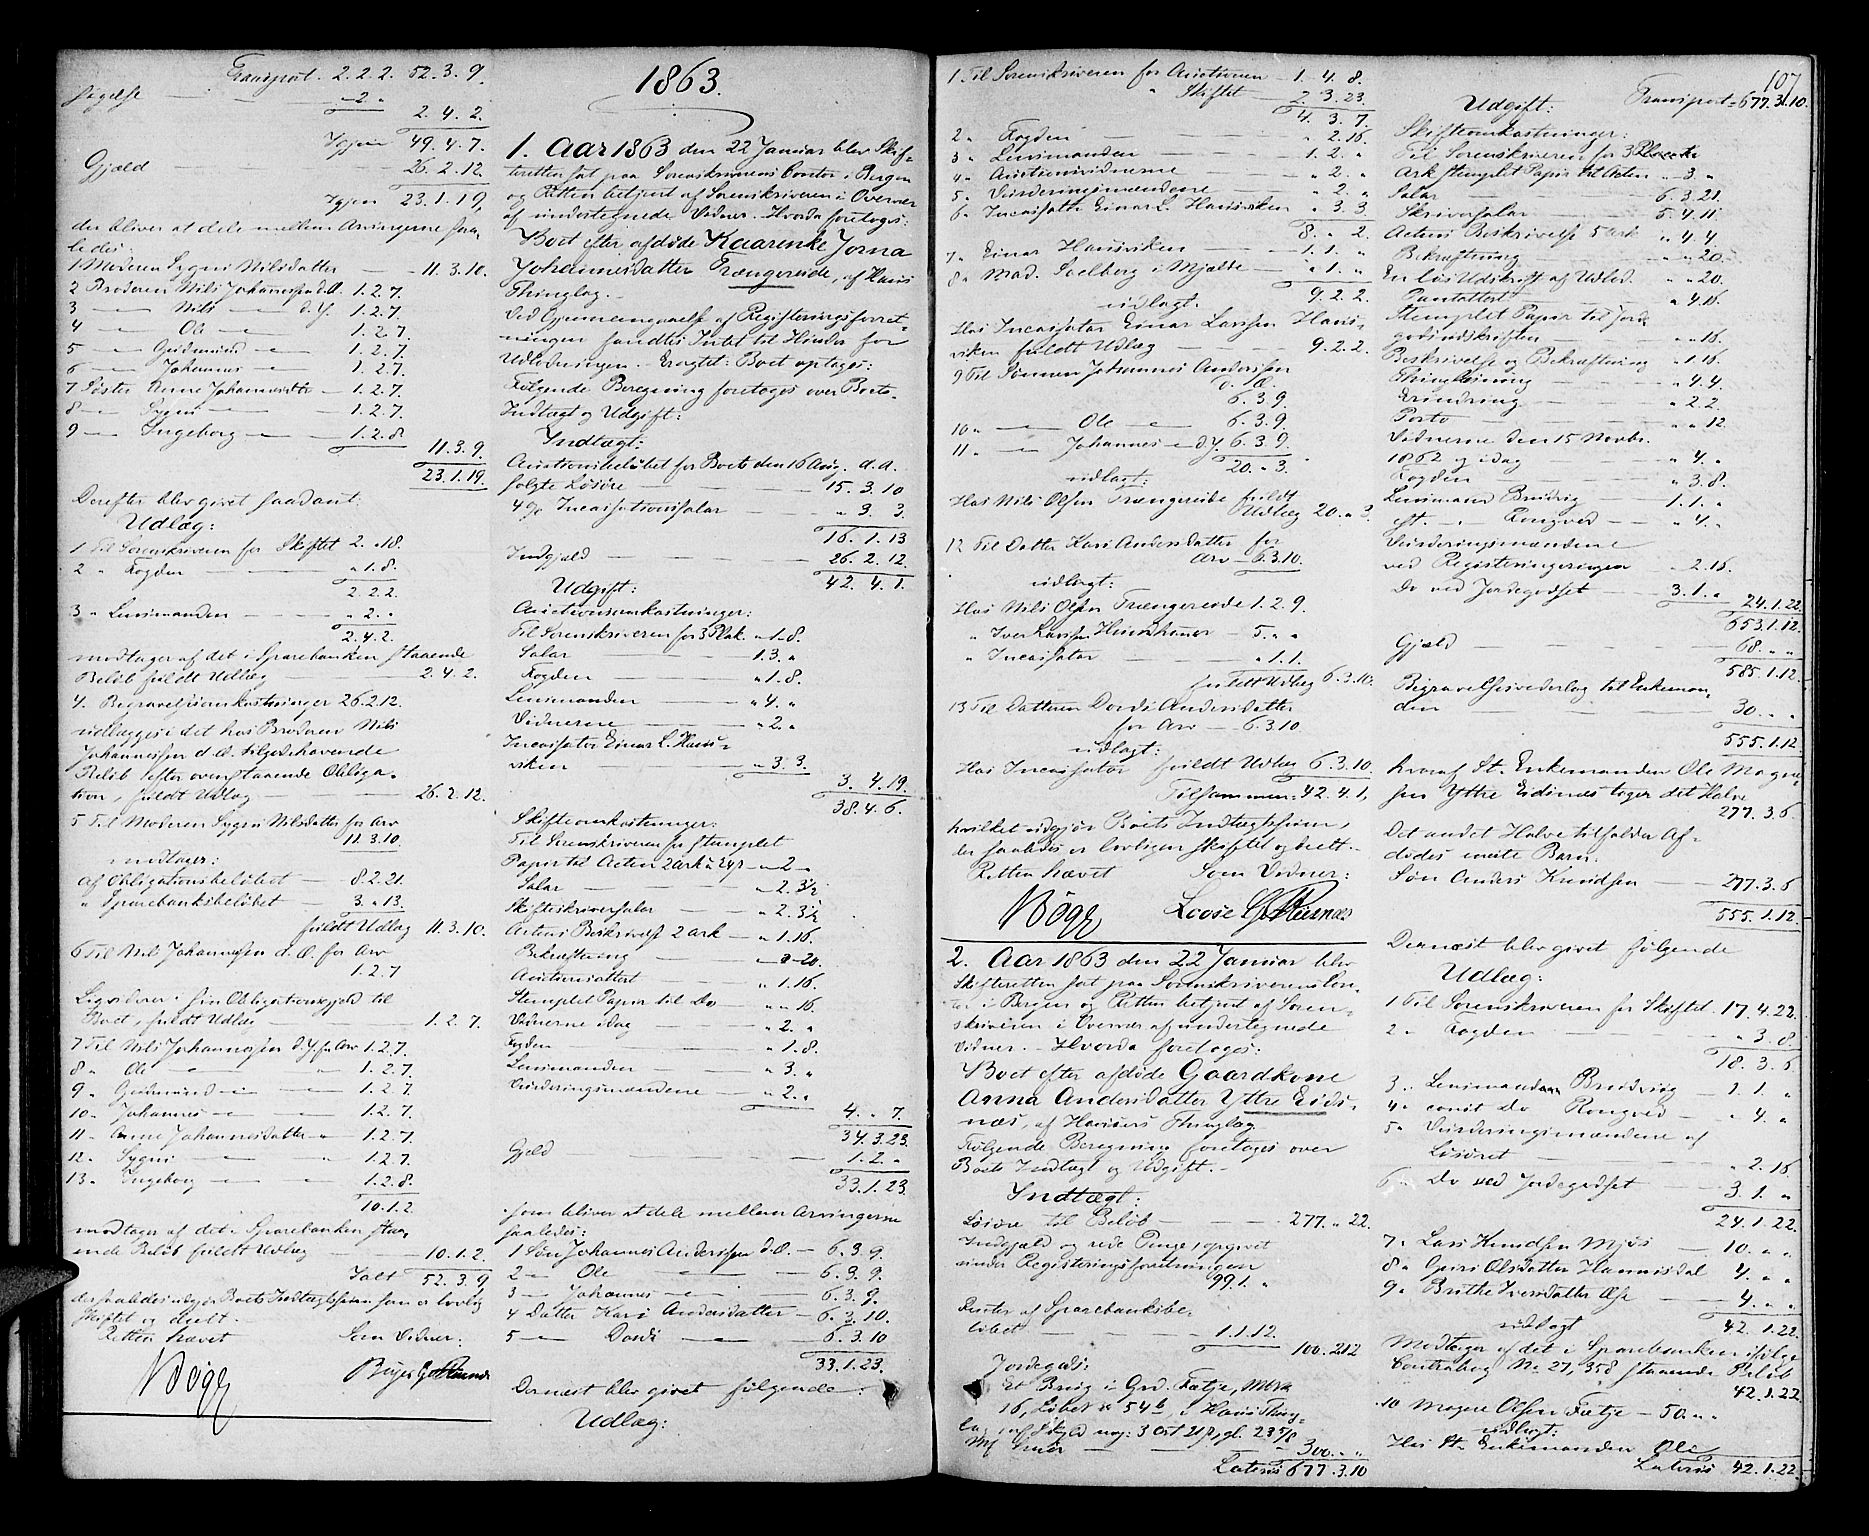 Transport. 2.2.2. 52.3.9.
følgelse — — — "2 "
2.4.2.
Igjen 49.4.7.
Gjæld — — — 26.2.12.
Igjen 23.1.19,
der bliver at dele mellem Arvingerne saa-
ledes:
1 Moderen Sygni Nilsdatter — — 11.3.10.
2 Broderen Nils Johannessen d.Æ. 1.2.7.
3 — Nils — d.Y. 1.2.7.
4 — Ole — 1.2.7.
5 — Gudmund — 1.2.7.
6 — Johannes — 1.2.7.
7 Søster Anne Johannesdttr — 1.2.7.
8 — Sygni — 1.2.7.
9 — Ingeborg — 1.2.8.
11.3.9.
23.1.19.
Derefter blev givet saadant
Udlæg:
1 Til Sorenskriveren for Skiftet 2. "18.
2 " Fogden — "1.8.
2.2.2.
3 " Lensmanden — "2. "
2.4.2.
modtager af det i Sparebanken staaende
Beløb fuldt Udlæg — 2.4.2.
4. Begravelsesomkostninger 26.2.12.
udlægges i det hos Broderen Nils
Johannessen d.Æ. tilgodehavende
Beløb efter ovenstaaende Obliga-
tion, fuldt Udlæg — 26.2.12.
5 Til Moderen Sygni Nilsdatter for Arv
11.3.10.
modtager:
af Obligationsbeløbet — 8.2.21.
" Sparebanksbeløbet — 3. "13.
fuldt Udlæg 11.3.10.
6 Til Nils Johannessen d.Æ. for Arv
1.2.7
Liqviderer i sin Obligationsgjæld til
Boet, fuldt Udlæg — 1.2.7.
7 Til Nils Johannessen d.Y. for Arv 1.2.7.
8 " Ole — " 1.2.7.
9 " Gudmund — 1.2.7.
10 " Johannes — 1.2.7.
11 " Anne Johannesdatter " 1.2.7.
12 " Sygni — " 1.2.7.
13 " Ingeborg — 1.2.8.
10.1.2.
modtager af det i Sparebanken staa-
ende Beløb fuldt Udlæg — 10.1.2.
Ialt 52.3.9
der saaledes udgjør Boets Indtægtssum som er lovlig
skiftet og deelt.
Retten hævet Som Vidner:
Bøgg
1863.
1. Aar 1863 den 22 Januar blev Skif-
teretten sat paa Sorenskriverens Contor i Bergen
og Retten betjent af Sorenskriveren i Overvær
af undertegnede Vidner. Hvorda foretoges:
Boet efter afdøde Kaarenke Jorna
Johannesdatter Trængereide, af Haus
Thinglag. —
Ved Gjennemgaaelse af Registeringsforret-
ningen fandtes Intet til Hinder for
Udlodningen. Eragtet: Boet optages:
Følgende Beregning foretoges over Boets
Indtægt og Udgift:
Indtægt:
Auctionsbeløbet for Boets den 16 Aug. d.a.
solgte Løsøre — 15.3.10
4 pc Incassationssalar — " 3 3.
16.1.13
Indgjæld — 26.2.12.
42.4.1.
Udgift:
Auctionsomkostninger:
Til Sorenskriveren for 3 Plak. "1.8.
Salar — 1.3. "
Fogden — "1.8.
Lensmanden — "4. "
Vidnerne — "2. "
Incassator Einar L. Haus-
viken — "3.3.
3.4.19.
38.4.6.
Skifteomkostninger:
Til Sorenskriveren for stemplet
Papir til Acten 2 ark à 24 s — "2 —
Salar — "2.3½
Skifteskriversalar — "2.3½
Actens Beskrivelse 2 ark — "1.16.
Bekræftning — " "20.
Auctionsattest — "1.16.
Stemplet Papir til Do — " "16.
Vidnerne idag — "2. "
Fogden — "1.8.
Lensmanden — "3. "
Vurderingsmændene — "2. "
4. " 7.
34.3.23.
Gjeld — 1.2. "
33.1.23.
som bliver at dele mellem Arvingerne
saaledes:
1 Søn Johannes Anderssen d.Æ. — 6.3.9.
2 — Ole — 6.3.9.
3 — Johannes — 6.3.9.
4 Datter Kari Andersdatter — 6.3.10.
5 — Dordi — 6.3.10
33.1.23.
Dernæst blev givet følgende:
Udlæg:
1. Til Sorenskriveren for Auctionen — 1.4.8.
" Skiftet — 2.3.23.
4.3.7.
2 " Fogden — " 2.16.
3 " Lensmanden — 1.2. "
4 " Auctionsvidnerne — " 2. "
5 " Vurderingsmændene — " 2. "
6 " Incassator Einar L. Hausviken " 3.3
8. " 2.
7 " Einar Hausviken — 1.1. "
8 " Mad. Soelberg i Mjelde — "1. "
9.2.2.
udlagt:
Hos Incassator Einar Larssen Haus-
viken fuldt Udlæg — 9.2.2.
9 Til Sønnen Johannes Anderssen
d.Æ. 6.3.9.
10 " — Ole — 6.3.9.
11 " — Johannes — d.Y. 6.3.9.
20. " 3.
udlagt:
Hos Nils Olsen Trængereide fuldt
Udlæg 20. " 3.
12 Til Datter Kari Andersdatter for
Arv — 6.3.10.
udlagt:
Hos Nils Olsen Trængereide 1.2.9.
" Iver Larssen — 5. " "
" Incassator — "1.1.
fuldt Udlæg 6.3.10.
13 Til Datteren Dordi Andersdatter
for Arv — 6.3.10
udlagt:
Hos Incassator fuldt Udlæg 6.3.10.
Tilsammen 42.4.1,
hvilket udgjør Boets Indtægtssum,
der saaledes er lovligen skiftet og deelt. —
Retten hævet Som Vidner:
Bøgg
2. Aar 1863 den 22 Januar blev
Skifteretten sat paa Sorenskriverens Con-
tor i Bergen og Retten betjent af Soren-
skriveren i Overvær af undertegnede
Vidner. — Hvorda foretoges:
Boet efter afdøde Gaardkone
Anna Andersdatter Yttre Eids-
næs, af Hausers Thinglag
Følgende Beregning foretoges over
Boets Indtægt og Udgift. —
Indtægt:
Løsøre til Beløb — 277. " 22.
Indgjæld og rede Penge, opgivet
under Registeringsforretningen
99.1. "
Renter af Sparebanksbe-
løbet — 1.1.12.
100.2.12
Jordegods:
Et Brug i Grd. Fætje, Mtr.
16, Løbe No 54 b, i Haus Thing-
lag, af Skyld nye: 3 Ort 21 s, gl. 23 5/8
Mf Smør — 300. " "
Lateris 677.3.10
107
Transport 677.3.10.
Udgift:
Skifteomkostninger:
Til Sorenskriveren for 3 Placate
Ark stemplet Papir til Acten " 3 "
Salar — 6.3.21.
Skriversalar — 5.4.11
Actens Beskrivelse 5 ark " 4.4
Bekræftning — " " 20.
En løs Udskrift af Udlod. " " 20.
Panteattest — " 4.16.
Stemplet Papir til Jorde-
godsudskriften — " " 16.
Beskrivelse og Bekræftning " 1.16.
Thinglæsning — " 4.4.
Grindring — " 2.2.
Porto — " " 12
Vidnerne den 15 Novbr.
1862 og idag — " 4. "
Fogden — " 3.8.
Lensmand Brudvig — 1.1. "
Rongved — " 4. "
Vurderingsmændene
ved Registeringen — " 2.16.
Do ved Jordegodset — 3.1. "
24.1.22.
653.1.12.
Gjæld — 68. " "
585.1.12.
Begravelsesvederlag til Enkeman-
den — 30. " "
555.1.12
hvoraf St. Enkemanden Ole Magne-
sen Yttre Eidsnæs tager det Halve
277.3.6
Det andet Halve tilfalder Af-
dødes eneste Barn:
Søn Anders Knudsen — 277.3.6
555.1.12.
Dernæst blev givet følgende
Udlæg:
1 Til Sorenskriveren for Skiftet 17.4.22.
2 " Fogden — " 3.8.
18.3.6.
3 " Lensmanden Brudvig — 1.1. "
4 " const. Do Rongved — " 4. "
5 " Vurderingsmændene af
Løsøret — " 2.16
6 " Do ved Jordegodset — 3.1. "
24.1.22.
7 " Lars Knudsen Mjøs — 10. " "
8 " Guri Olsdatter Hannisdal 4. " "
9 " Brithe Iversdatter Øse — 4. " "
42.1.22.
udlagt
Modtager af det i Sparebanken ifølge
Contrabog No 27,358 staaende Beløb
42.1.22
10 Mogens Olsen Fætje — 50. " "
udlagt:
Hos St. Enkemanden Ole
Lateris 42.1.22.